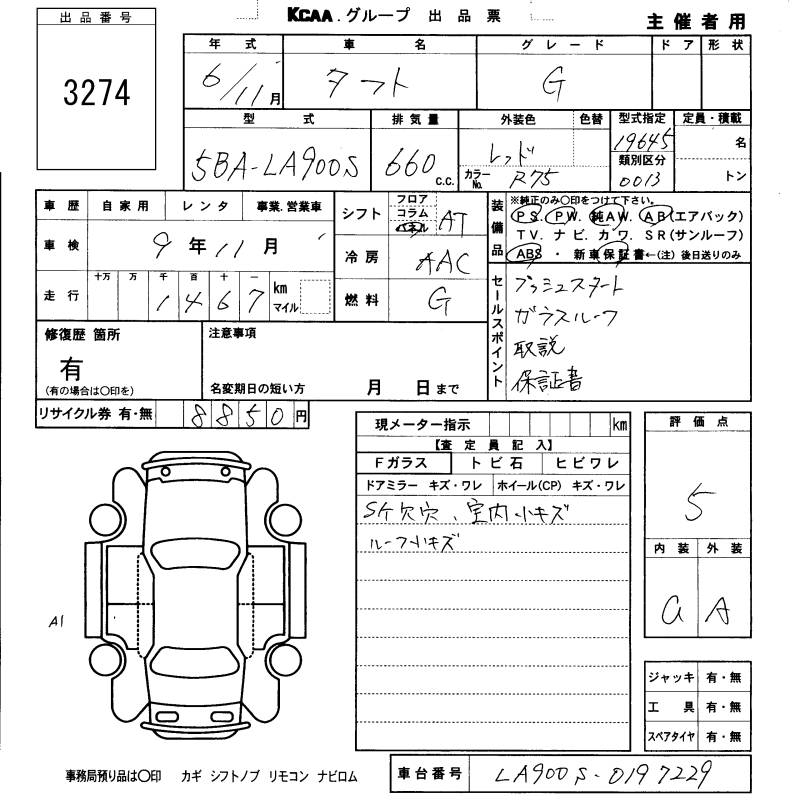 出品番号
KCAA.グループ 出品票
主催者用
3274
年式 車名 グレード ドア 形状
6/11月 タフト G
型式 排気量 外装色 色替 型式指定 定員・積載
5BA-LA900S 660 c.c. レッド カラーNo. R75 19645 類別区分 0013 名 トン
車歴 自家用 レンタ 事業.営業車
車検 9年11月
走行 十万 万 千 百 十 一
1467 km マイル
シフト フロア コラム パネル AT
冷房 AAC
燃料 G
装備品
※純正のみ〇印をつけて下さい。
PS. PW. 純AW. AB(エアバック)
TV. ナビ. カワ. SR(サンルーフ)
ABS ・ 新車保証書←(注) 後日送りのみ
セールスポイント
プッシュスタート
ガラスルーフ
取説
保証書
修復歴 箇所
有
(有の場合は〇印を)
注意事項
名変期日の短い方 月 日まで
リサイクル券 有・無 8850円
現メーター指示 km
【査定員記入】
Fガラス トビ石 ヒビワレ
ドアミラー キズ・ワレ ホイール(CP) キズ・ワレ
Sケ欠穴、室内小キズ
ルーフ小キズ
評価点
5
内装 外装
a A
A1
ジャッキ 有・無
工具 有・無
スペアタイヤ 有・無
事務局預り品は〇印 カギ シフトノブ リモコン ナビロム
車台番号 LA900S-0197229